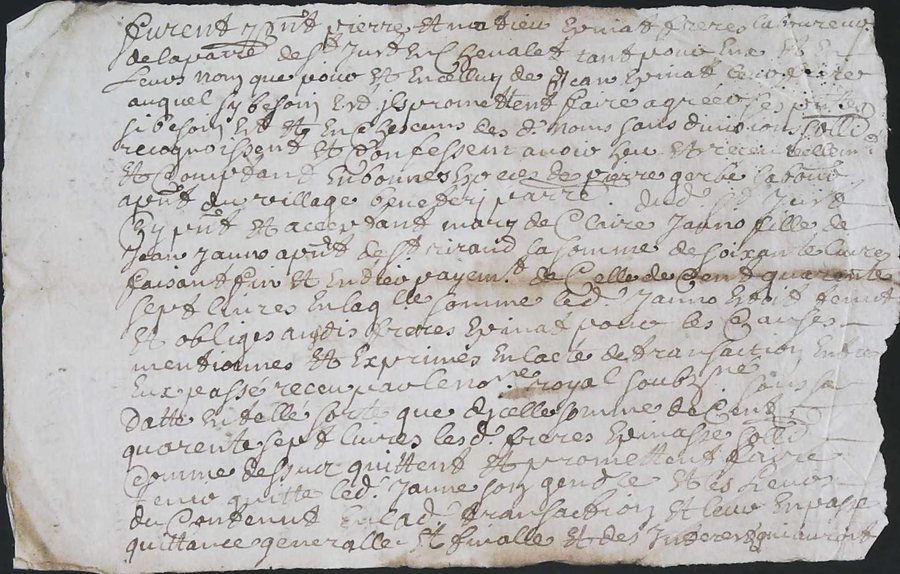 furent p̃nt pierre et matieu Epinat freres laboureur
de la parr de St Just En Chevalet tant pour Eux Et En
Leurs nom que pour Et En celluy de Jean Epinat leur frere
auquel sy besoin Est ils promettent faire agréer ses
si besoin Est Et En Chescuns des d noms sans division solid
recognoissent Et Confessent avoir heu Et receu reellem
Et Comptant En bonnes Especes de pierre gerbe
du village parre dud St Just
Cy p̃nt Et acceptant mary de Claire Janno fille de
Jean Janno de St rirand la somme de soixante livres
faisant fin Et Entier payemt de Celle de Cent quarante
sept livres En laqlle somme led Janno Estoit tenu
Et oblige ausdis freres Epinat pour les Causes
mentionnes Et Exprimes En lacte de transaction Entre
Eux passe receu par le nore royal soubzne sous sa
datte En telle sorte que dicelle somme de Cent
quarente sept livres lesd freres Epinasse solid
Comme dessus quittent Et promettent faire
tenir quitte led Janno son gendre Et les siens
du Contenu En lad transaction Et leur En passe
quittance generalle Et finalle Et des Interest qui auroit